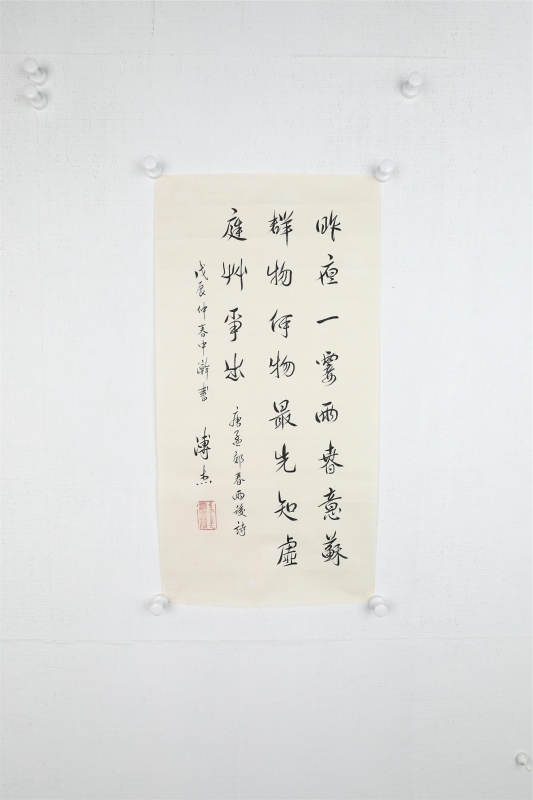 昨一霎雨春意蘇
群物何物最先知虛
庭艸爭出
唐孟郊春雨後詩
戊辰仲春中澣書
溥杰